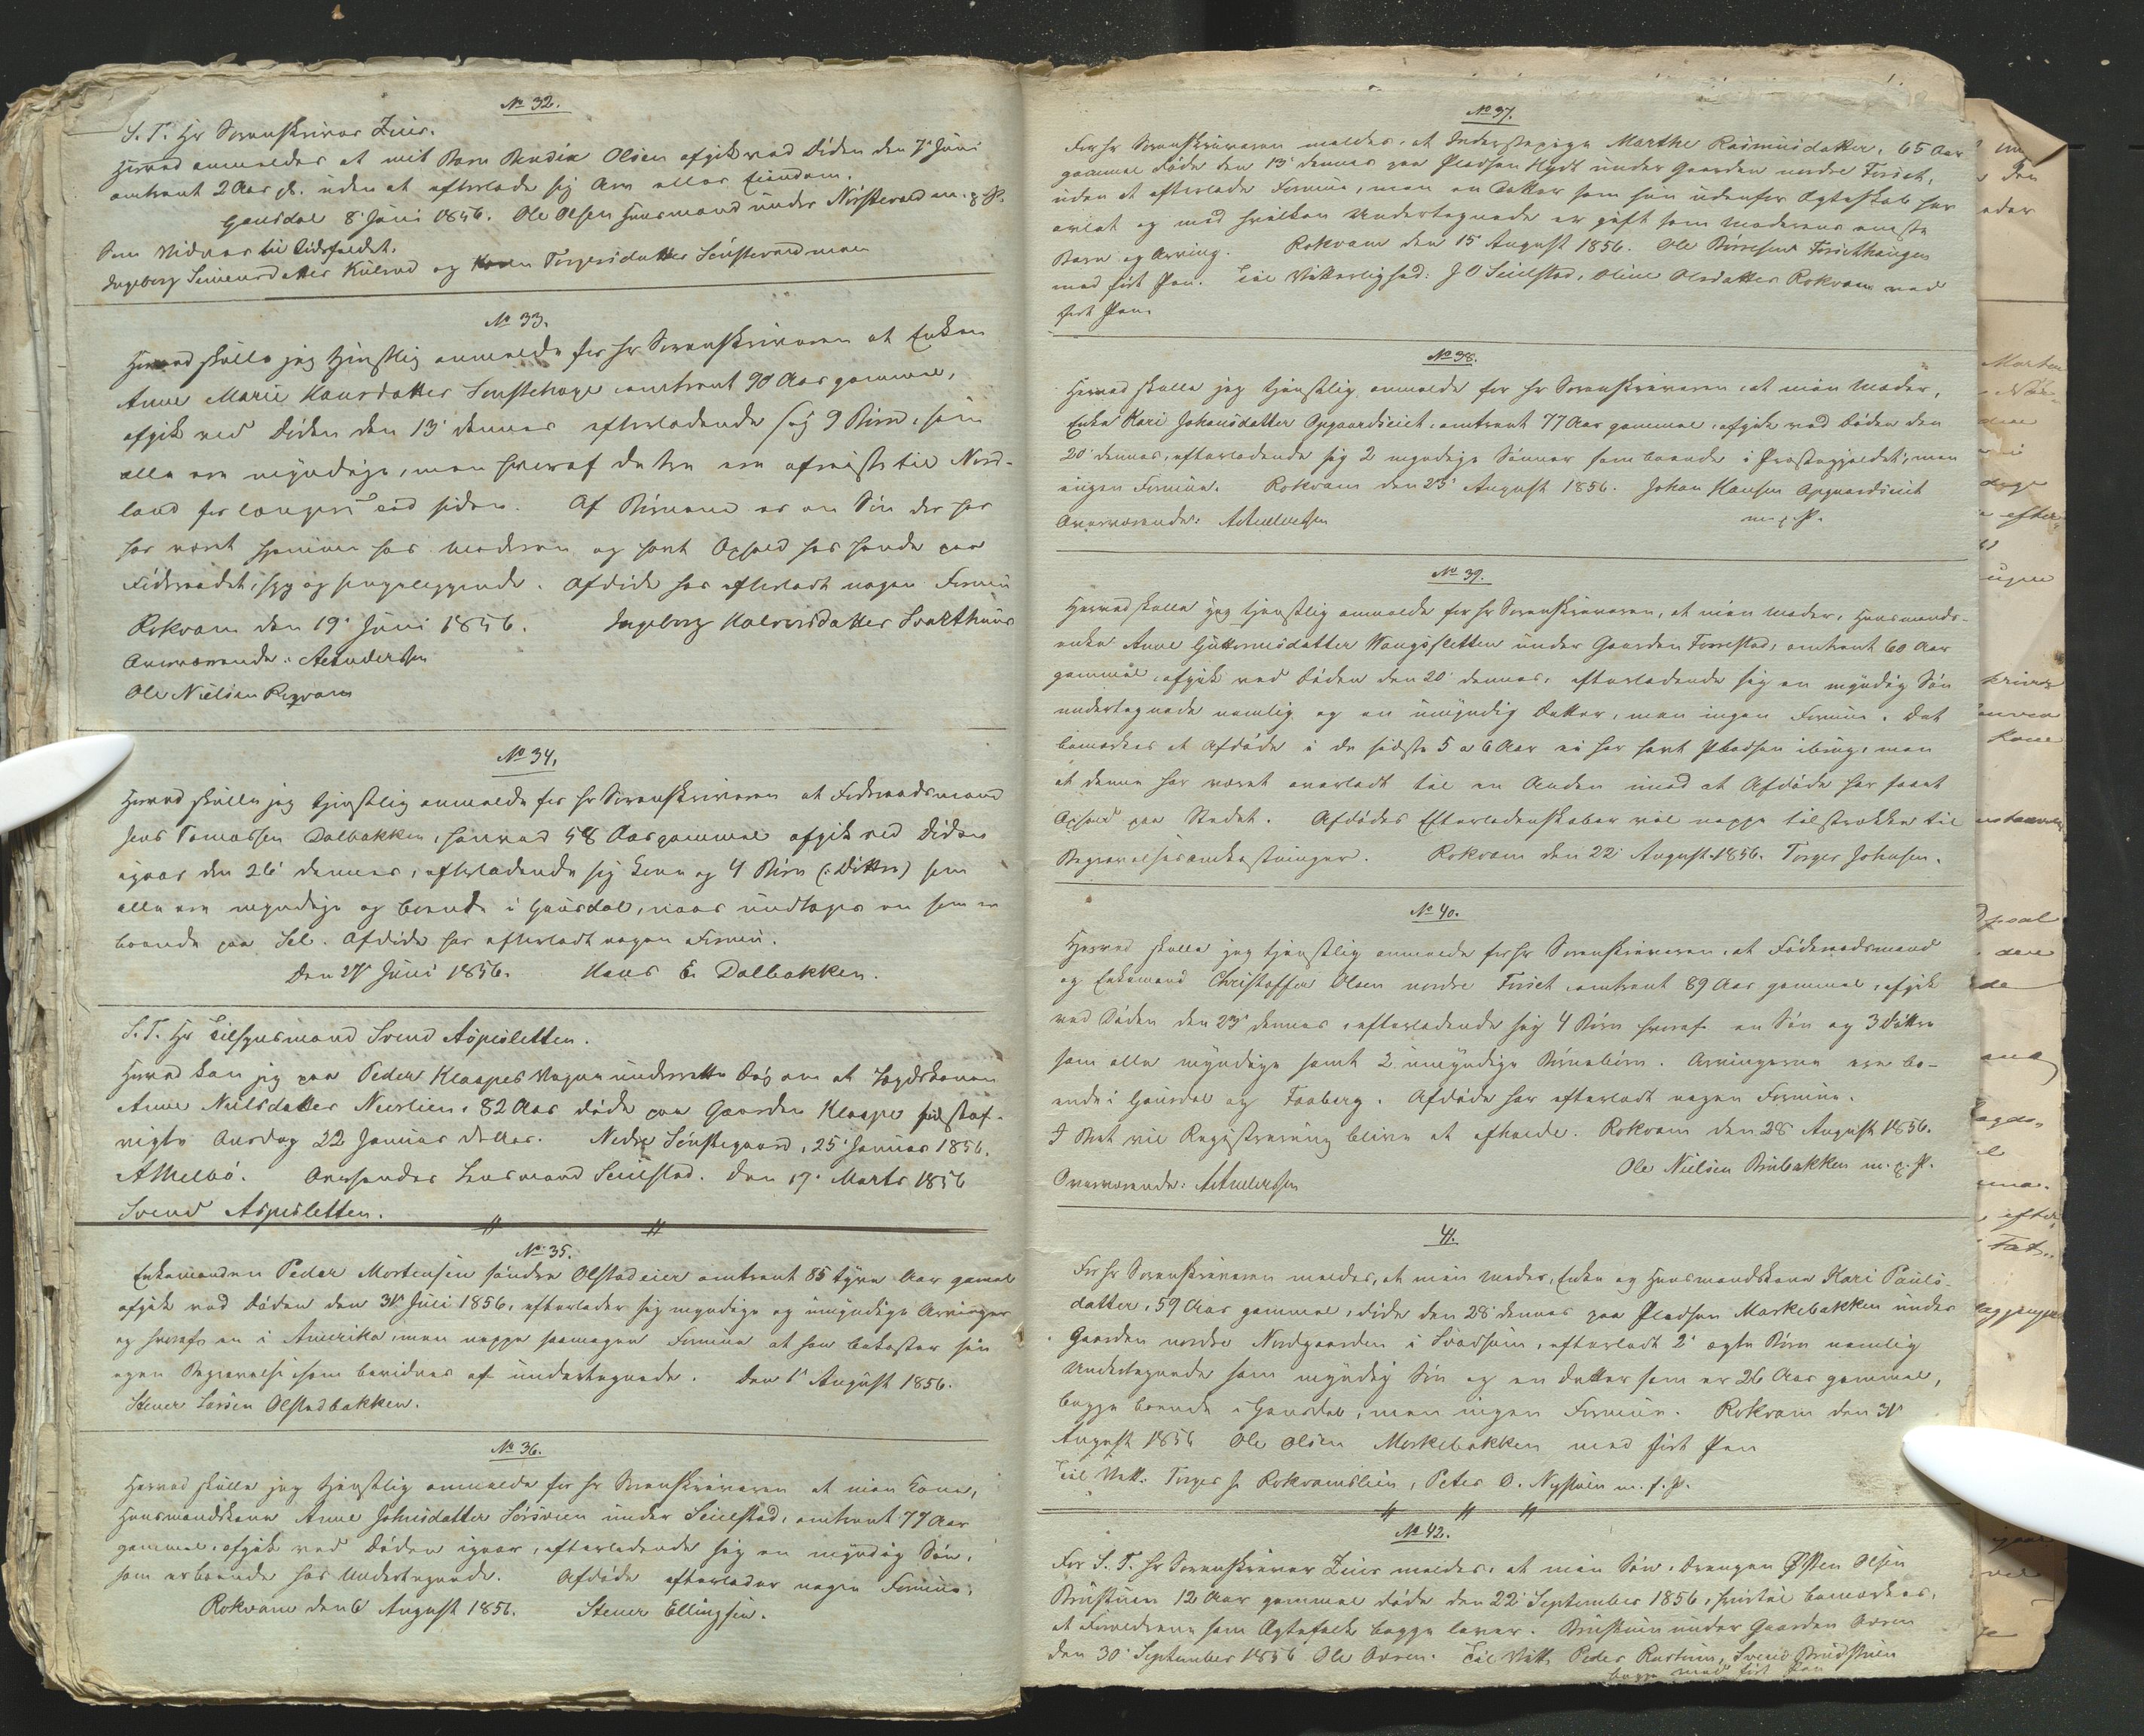 No 32.
S. T. Hr Sorenskriver Zuur.
Herved anmeldes at mit Barn Bendix Olsen afgik ved Døden den 7de Juni
omtrent 2 Aar gl. uden at efterlade sig Arv eller Eiendom.
Gausdal 8 Juni 1856. Ole Olsen Huusmand under Nørstevold m. p. P.
Som Vidner til Dødsfaldet.
Ingeborg Simensdatter Kulrud og Karen Torgersdatter
No 33.
Herved skulle jeg tjenstlig anmelde for Hr Sorenskriveren at Enken
Anne Marie Hansdatter omtrent 90 Aar gammel,
afgik ved Døden den 13de dennes efterladende sig 9 Børn, som
alle ere myndige, men hvoraf de tre ere afreiste til Nord-
land for længere Tid siden. Af Børnene er en Søn der har
har været hjemme hos Moderen og havt Ophold hos hende paa
Føderaadet, syg og sengeliggende. Afdøde har efterladt nogen Formue
Rokvam den 19de Juni 1856. Ingeborg Halvorsdatter
Overværende: A Andersen
Ole Nielsen
No 34.
Herved skulle jeg tjenstlig anmelde for Hr Sorenskriveren at Føderaadsmand
Jens Tomassen Dalbakken, henved 58 Aar gammel afgik ved Døden
igaar den 26de dennes, efterladende sig Kone og 4 Børn (: Døttre) som
alle ere myndige og boende i Gausdal, naar undtages en som er
boende paa Sel. Afdøde har efterladt nogen Formue.
Den 27de Juni 1856. Hans E. Dalbakken.
S. T. Hr Tilsynsmand Svend Aspesletten.
Herved kan jeg paa Peder Klaapes Vegne underrette Dig om at
Anne Nielsdatter 82 Aar døde paa Gaarden Klaape
Onsdag 22 Januar d. Aar. Nedre Sønstegaard, 25de Januar 1856.
A Melbö. Oversendes Lensmand Seielstad. Den 17de Marts 1856
Svend Aspesletten.
No 35.
Enkemanden Peder Mortensen søndre Olstadeier omtrent 85 Aar gamel
afgik ved Døden den 31te Juli 1856, efterlader sig myndige og umyndige Arvinger
og hvoraf en i Amerika, men neppe saamegen Formue at han bekoster sin
egen Begravelse som bevidnes af undertegnede. Den 1te August 1856.
Stener Larsen Olstadbakken.
No 36.
Herved skulle jeg tjenstlig anmelde for Hr Sorenskriveren at min Kone,
Huusmandskone Anne Johnsdatter under Seielstad, omtrent 77 Aar
gammel, afgik ved Døden igaar, efterladende sig en myndig Søn,
som er boende hos Undertegnede. Afdøde efterlader nogen Formue.
Rokvam den 6 August 1856. Stener Ellingsen.
No 37.
For Hr Sorenskriveren meldes, at Inderstepige Marthe Rasmusdatter, 65 Aar
gammel døde den 13de dennes paa Pladsen under Gaarden nordre Forset,
uden at efterlade Formue, men en Datter som hun udenfor Ægteskab har
avlet og med hvilken Undertegnede er gift som Moderens eneste
Barn og Arving. Rokvam den 15de August 1856. Ole Forsethaugen
med ført Pen. Til Vitterlighed: J O Seielstad, Oline Olsdatter Rokvam med
ført Pen.
No 38.
Herved skulle jeg tjenstlig anmelde for Hr Sorenskriveren, at min Moder,
Enke Kari Johansdatter Opgaardseiet, omtrent 77 Aar gammel, afgik ved Døden den
20de dennes, efterladende sig 2 myndige Sønner som boende i Præstegjeldet, men
ingen Formue. Rokvam den 23de August 1856. Johan Hansen Opgaardseiet
Overværende: A Andersen m. p. P.
No 39.
Herved skulle jeg tjenstlig anmelde for Hr Sorenskriveren, at min Moder, Huusmands-
enke Anne Guttormsdatter Vangsletten under Gaarden Forrestad, omtrent 60 Aar
gammel, afgik ved Døden den 20de dennes, efterladende sig en myndig Søn
undertegnede nemlig og en umyndig Datter, men ingen Formue. Det
bemærkes at Afdøde i de sidste 5 a 6 Aar ei har havt Pladsen ibrug, men
at denne har været overladt til en Anden imod at Afdøde har faaet
Ophold paa Stedet. Afdødes Efterladenskaber vil neppe tilstrække til
Begravelsesomkostninger. Rokvam den 22de August 1856. Torger Johnsen.
No 40.
Herved skulle jeg tjenstlig anmelde for Hr Sorenskriveren, at Føderaadsmand
og Enkemand Christoffer Olsen nordre Forset, omtrent 89 Aar gammel, afgik
ved Døden den 23de dennes, efterladende sig 4 Børn hvoraf en Søn og 3 Døttre
som alle myndige samt 2 umyndige Børnebørn. Arvingerne ere bo-
ende i Gausdal og Faaberg. Afdøde har efterladt nogen Formue.
I Boet vil Registrering blive at afholde. Rokvam den 28de August 1856.
Ole Nielsen m. p. P.
Overværende: A Andersen
41.
For Hr Sorenskriveren meldes, at min Moder, Enke og Huusmandskone Kari Pauls-
datter, 59 Aar gammel, døde den 28de dennes paa Pladsen Markebakken under
Gaarden nordre Nordgaarden i Svadsum, efterladt 2 ægte Børn nemlig
Undertegnede som myndig Søn og en Datter som er 26 Aar gammel,
begge boende i Gausdal, men ingen Formue. Rokvam den 31te
August 1856 Ole Olsen Markebakken med ført Pen
Til Vitt: Torger J. Rokvamslien, Peter O. Nystuen m. f. P.
No 42.
For S. T. Hr Sorenskriver Zuur meldes, at min Søn, Drengen Østen Olsen
Brustuen 12 Aar gammel døde den 22de September 1856, hvortil bemærkes,
at Forældrene som Ægtefolk begge lever. Brustuen under Gaarden
den 30te September 1856 Ole Til Vitt: Peder
begge med ført Pen